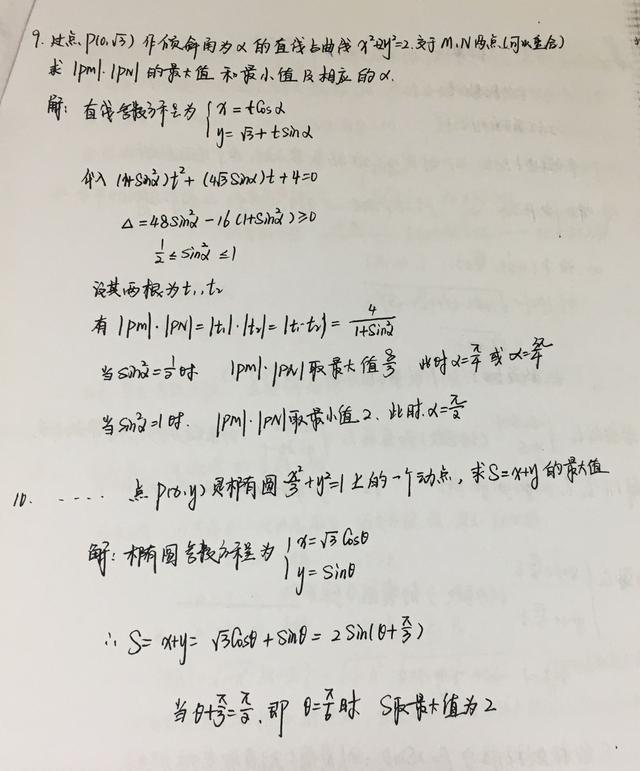 9. 过点P(0,√3)作倾斜角为α的直线与曲线x²+2y²=2.交于M,N两点(可以重合)
求|PM|·|PN|的最大值和最小值及相应的α.
解: 直线参数方程为 { x=tcosα
y=√3+tsinα
代入 (1+sin²α)t²+(4√3sinα)t+4=0
Δ=48sin²α-16(1+sin²α)≥0
1/2≤sin²α≤1
设其两根为t₁,t₂
有|PM|·|PN|=|t₁|·|t₂|=|t₁·t₂|=4/(1+sin²α)
当sin²α=1/2时 |PM|·|PN|取最大值8/3 此时α=π/4或α=3π/4
当sin²α=1时. |PM|·|PN|取最小值2. 此时.α=π/2
10. ..... 点P(x,y)是椭圆x²/3+y²=1上的一个动点,求S=x+y的最大值
解: 椭圆参数方程为 { x=√3cosθ
y=sinθ
∴ S=x+y=√3cosθ+sinθ=2sin(θ+π/3)
当θ+π/3=π/2,即θ=π/6时 S取最大值为2